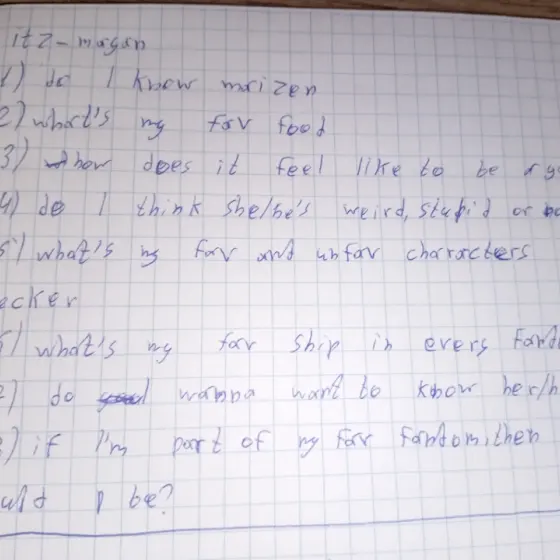 itz-magan
1) do I know maizen
2) what's my fav food
3) how does it feel like to be
4) do I think she/he's weird, stupid or
5) what's my fav and unfav characters
ecker
1) what's my fav ship in every fand
2) do wanna want to know her/h
3) if I'm part of my fav fandom, then
uld I be?